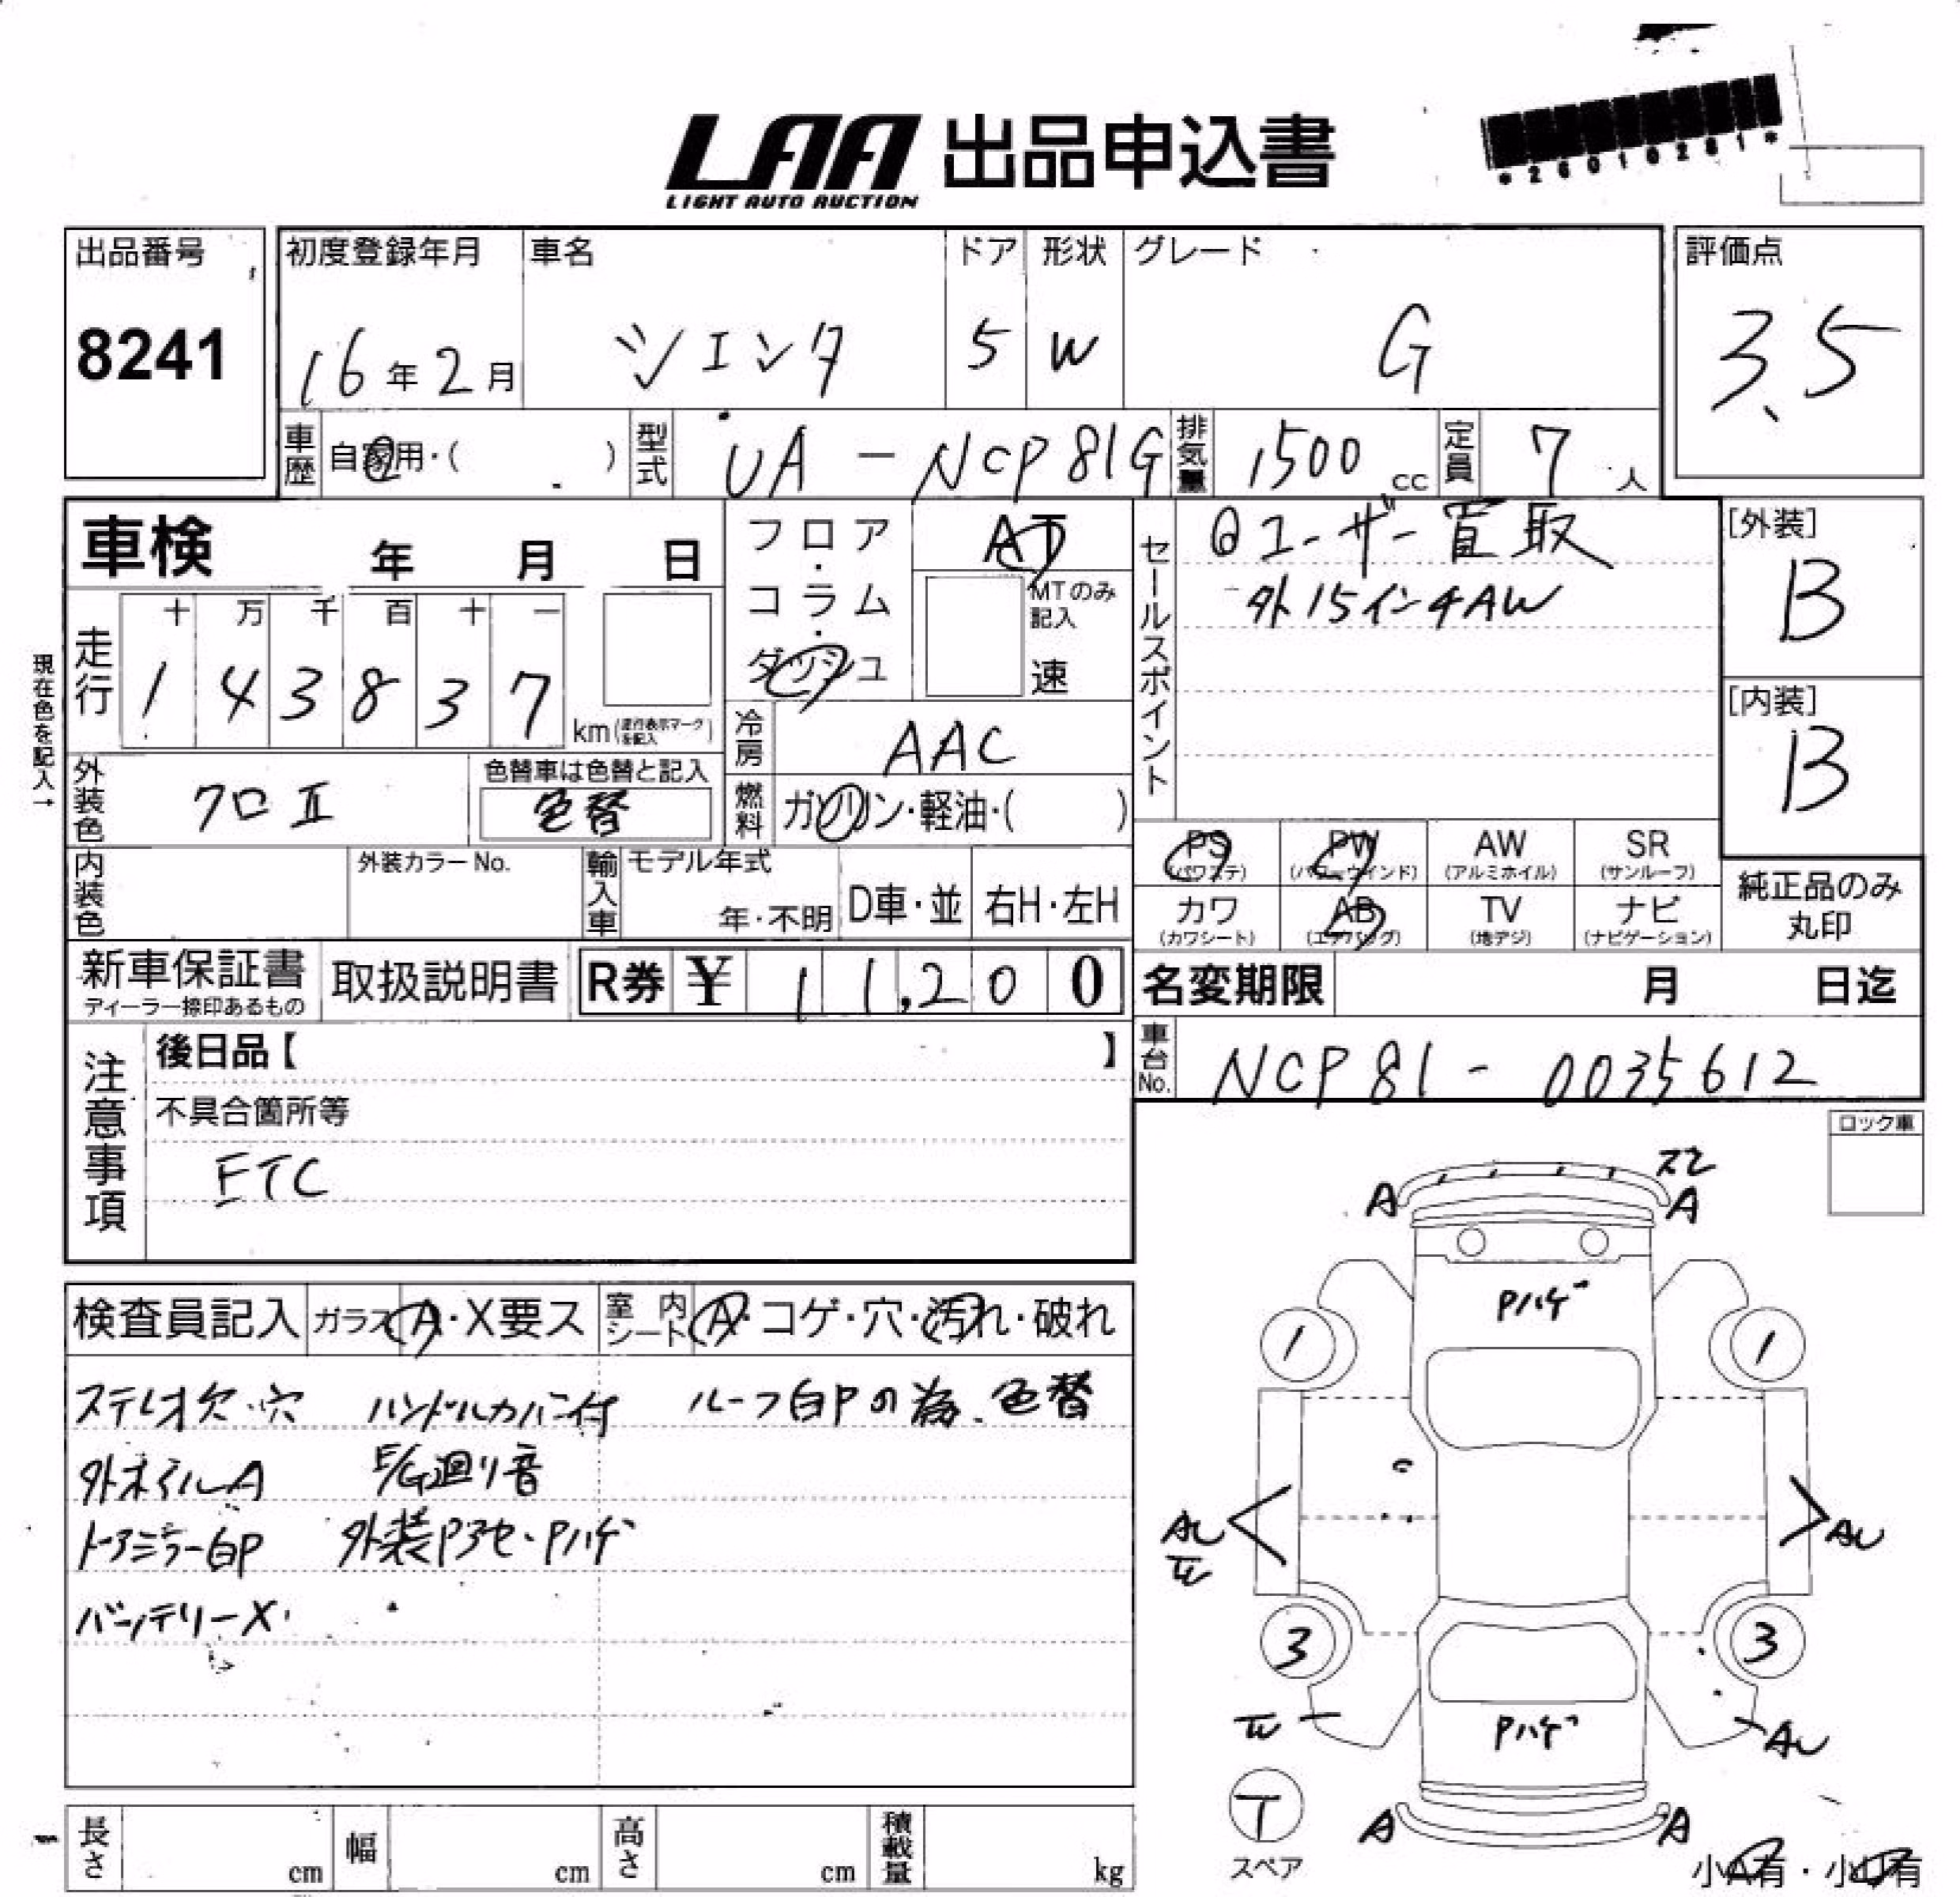 LAA 出品申込書
LIGHT AUTO AUCTION
*26010281*
出品番号
8241
初度登録年月
16年2月
車名
シエンタ
ドア
5
形状
W
グレード
G
評価点
3.5
車歴
自家用・( )
型式
UA-NCP81G
排気量
1500 cc
定員
7人
車検 年 月 日
フロア・コラム・ダッシュ
AT
MTのみ記入
速
セールスポイント
ユーザー買取
外15インチAW
[外装]
B
[内装]
B
現在色を記入→
走行
十 万 千 百 十 一
1 4 3 8 3 7
km
冷房
AAC
燃料
ガソリン・軽油・( )
外装色
クロⅡ
色替車は色替と記入
色替
PS
(パワステ)
PW
(パワーウインド)
AW
(アルミホイル)
SR
(サンルーフ)
カワ
(カワシート)
AB
(エアバッグ)
TV
(地デジ)
ナビ
(ナビゲーション)
純正品のみ
丸印
内装色
外装カラーNo.
輸入車
モデル年式
年・不明
D車・並
右H・左H
新車保証書
ディーラー捺印あるもの
取扱説明書
R券 ¥ 11,200
名変期限 月 日迄
車台No.
NCP81-0035612
注意事項
後日品【 】
不具合箇所等
ETC
ロック車
検査員記入
ガラス A・X要ス
室内シート A・コゲ・穴・汚れ・破れ
ステレオ欠・穴 ハンドルカバー付 ルーフ白Pの為、色替
外ホイルA E/G廻り音
ドアミラー白P 外装Pアセ・Pハゲ
バッテリーX
スレ
A A
Pハゲ
1 1
AU AU
3 3
Pハゲ
AU
T
スペア
A A
長さ cm
幅 cm
高さ cm
積載量 kg
小A有・小U有